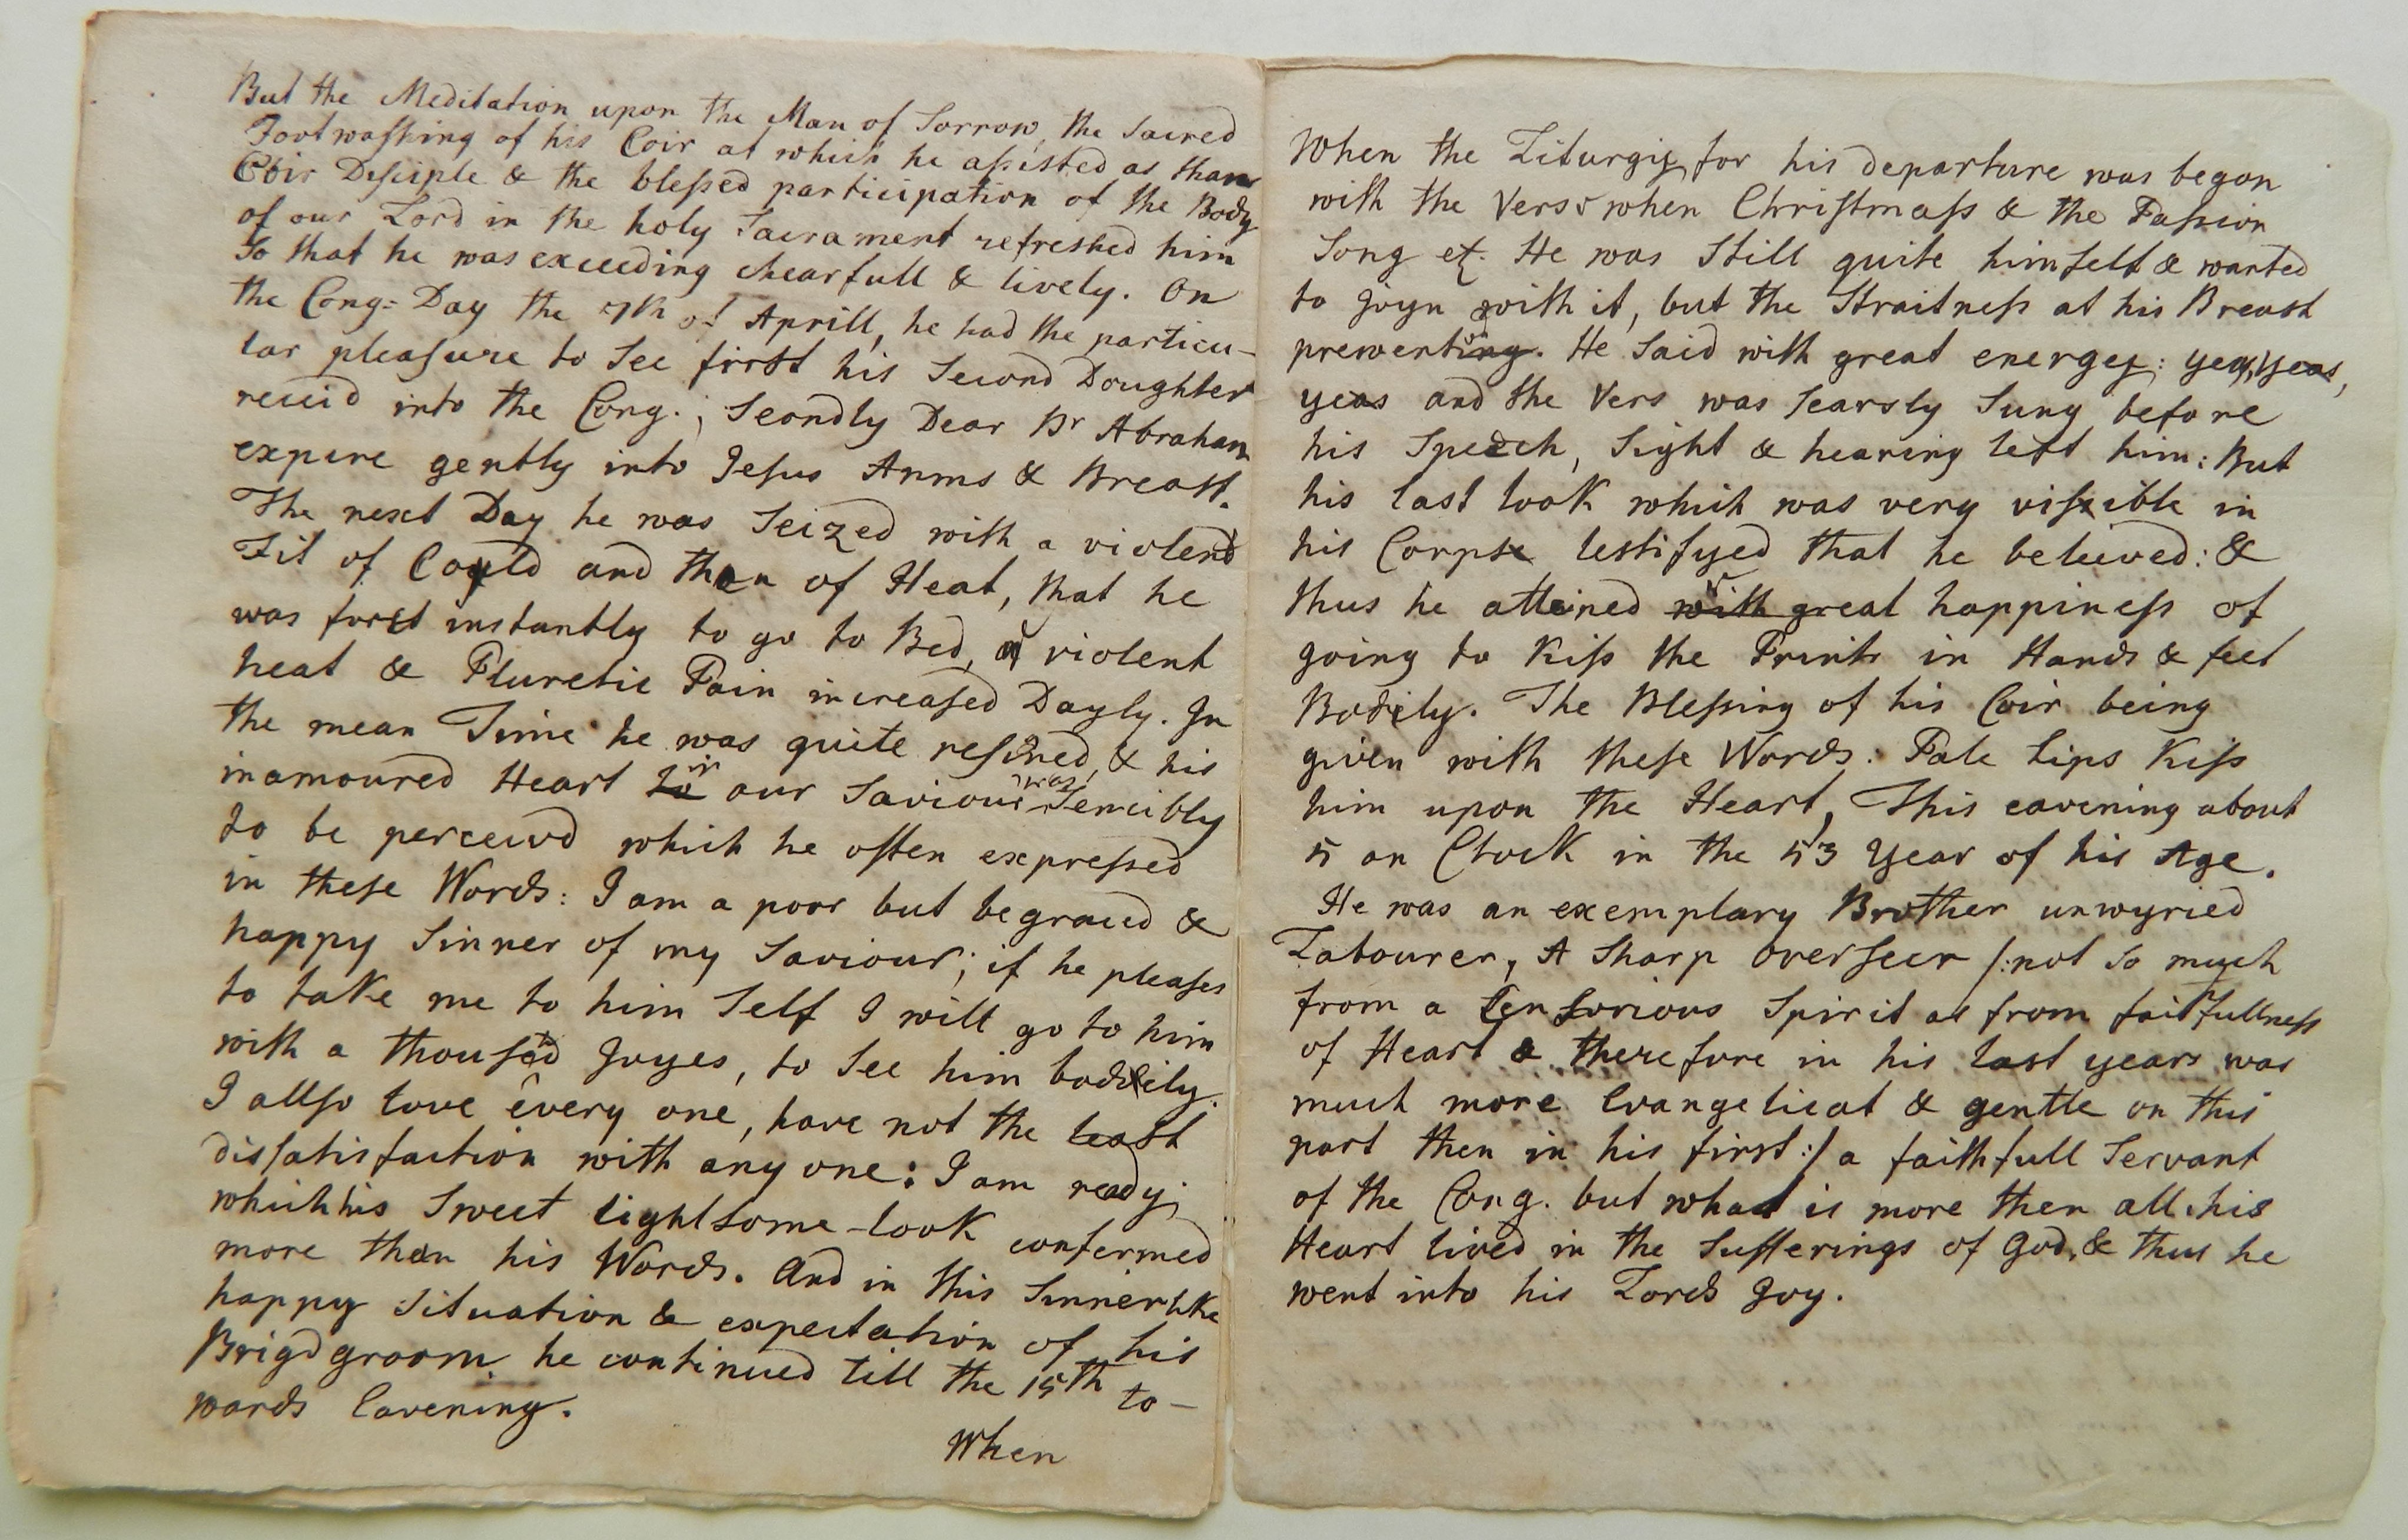 But the Meditation upon the Man of Sorrow, the Sacred
Footwashing of his Coir at which he assisted as than
Coir Desciple & the blessed participation of the Body
of our Lord in the holy Sacrament refreshed him
So that he was exceeding chearfull & lively. On
the Cong= Day the 7th of Aprill, he had the particu-
lar pleasure to See first his Second Doughter
receid into the Cong.; Seondly Dear Br Abraham
expire gently into Jesus Arms & Breast.
The next Day he was Seized with a violend
Fit of Could and then of Heat, that he
was forct instantly to go to Bed, a violent
heat & Pluretic Pain increased Dayly. In
the mean Time he was quite resined, & his
inamoured Heart to in our Saviour was Sencibly
to be perceivd which he often expressed
in these Words: I am a poor but begraced &
happy Sinner of my Saviour; if he pleases
to take me to him Self I will go to him
with a thoused Joyes, to See him bodily.
I allso love every one, have not the least
dissatisfaction with any one: I am ready;
which his Sweet lightsome look confermed
more then his Words. And in this Sinnerlike
happy Situation & expectation of his
Brigdgroom he continued till the 15th to-
wards Eavening.
When
When the Liturgiy for his departure was began
with the Vers: when Christmass & the Passion
Song et. He was Still quite himself & wanted
to joyn with it, but the Straitness at his Breast
preventing. He Said with great energey: yeas, yeas,
yeas and the Vers was Scarsly Sung before
his Speech, Sight & hearing left him: But
his last look which was very vissible in
his Corpse testifyed that he beleeved: &
thus he atteined with great happiness of
going to Kiss the Prints in Hands & feet
Bodily. The Blessing of his Coir being
given with these Words: Pale Lips Kiss
him upon the Heart, This eavening about
5 an Clock in the 53 Year of his Age.
He was an exemplary Brother unwyried
Labourer, A Sharp overseer /: not so much
from a Censorious Spirit as from faithfullness
of Heart & therefore in his last years was
much more Evangelical & gentle on this
part then in his first :/ a faithfull Servant
of the Cong. but what is more then all his
Heart lived in the Sufferings of God, & thus he
went into his Lords Joy.